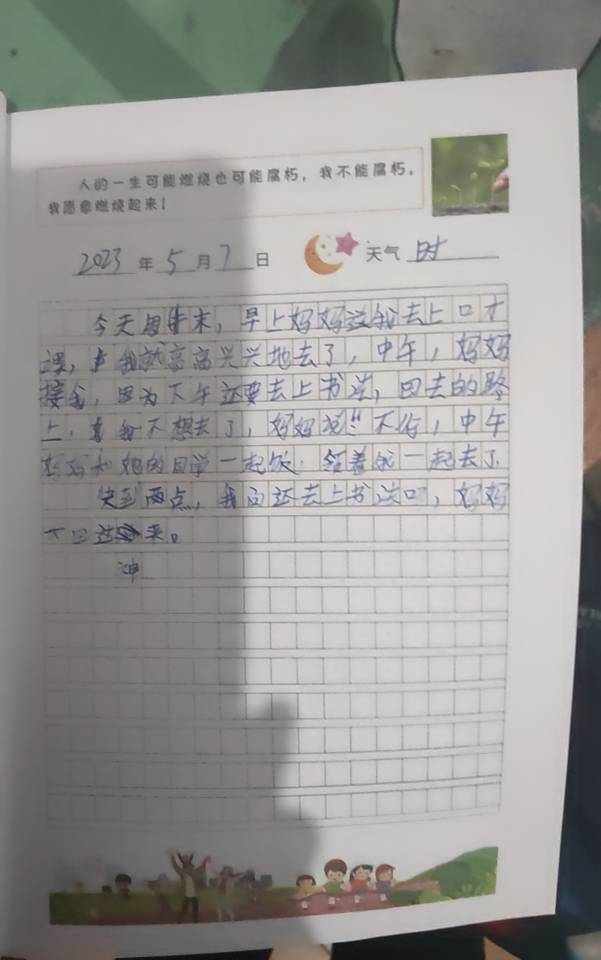 人的一生可能燃烧也可能腐朽，我不能腐朽，
我愿意燃烧起来！
2023 年 5 月 7 日 天气 时
今天周末，早上妈妈送我去上口才
课，我就高高兴兴地去了，中午，妈妈
接我，因为下午还要去上书法，回去的路
上，我不想去了，妈妈说"不行，中午
妈妈和她的同学一起饭，领着我一起去了
快到两点，我问还去上书法吗，妈妈